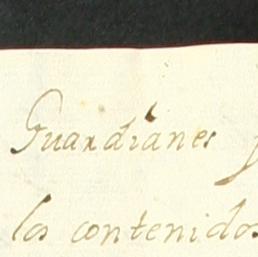 Guardianes y
los contenidos